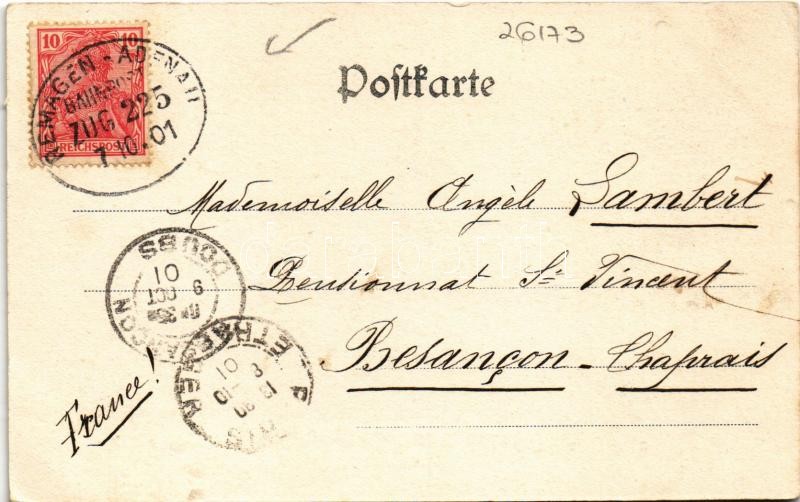 26173
10 10
REICHSPOST
REMAGEN - ADENAU
BAHNPOST
ZUG 225
7 10.01
Postkarte
Mademoiselle Angèle Lambert
Pensionnat St Vincent
Besançon - Chaprais
France!
BESANÇON DOUBS
9 OCT
01
PARIS ETRANGER
8 10
01